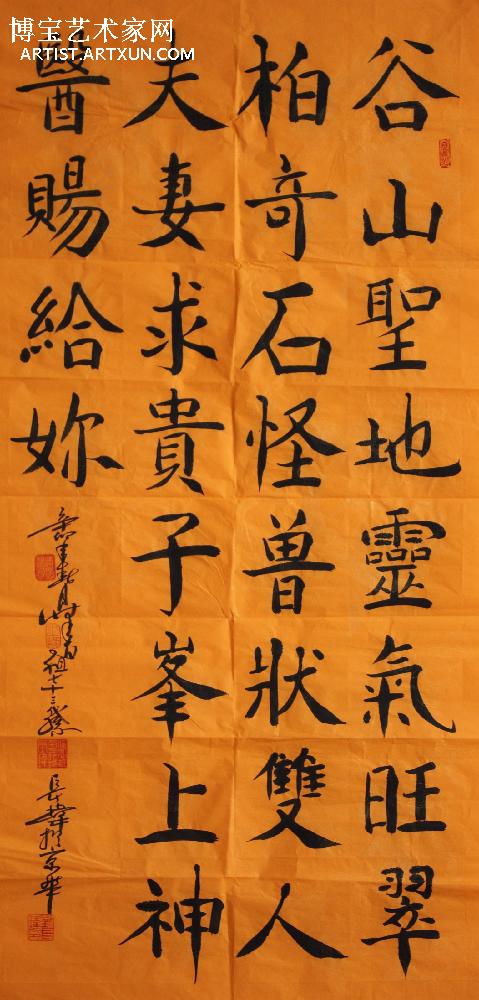 博宝艺术家网
ARTIST.ARTXUN.COM
谷山聖地靈氣旺翠
柏奇石怪兽狀雙人
夫妻求貴子峯上神
醫賜給妳
七十三
長 京華